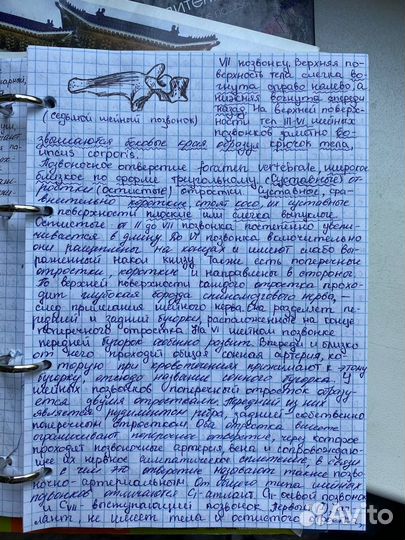 VII позвонку. Верхняя по-
верхность тела слегка во-
гнута справо налево, а
нижняя вогнута спереди
назад. На верхней поверх-
ности тел III-VI шейных
(седьмой шейный позвонок)
позвонков заметно во-
звышаются боковые края образуя крючок тела,
uncus corporis.
Позвоночное отверстие foramen vertebrale, широкое
близкое по форме треугольному (суставные) от-
ростки (остистые) отростки суставные, сра-
внительно короткие, стоят косо, их суставные
поверхности плоские или слегка выпуклые.
Остистые от II до VII позвонка постепенно увели-
чиваются в длину. До VI позвонка включительно
они расщеплены на концах и имеют слабо вы-
раженный накол книзу. Также есть поперечные
отростки, короткие и направлены в стороны.
По верхней поверхности каждого отростка прохо-
дит глубокая борозда спинномозгового нерва, —
след прилегания шейного нерва. Она разделяет пе-
редний и задний бугорки, расположенные на конце
поперечного отростка. На VI шейном позвонке
передний бугорок особенно развит. Впереди и близко
от него проходит общая сонная артерия, ко-
торую при кровотечениях прижимают к этому
бугорку, отсюда название сонного бугорка. У
шейных позвонков поперечный отросток образу-
ется двумя отростками. Передний из них
является рудиментом ребра, задней собственно
поперечным отростком. Оба отростка вместе
ограничивают поперечное отверстие, через которое
проходит позвоночные артерия, вена и сопровождаю-
щие их нервное симпатическое сплетение, в связи
с чем это отверстие называют также позво-
ночно-артериальным. От общего типа шейных
позвонков отличаются CI-атлант, CII-осевой позвонок
и CVII выступающий позвонок. Первой
лант, не имеет тела и остистого
Avito